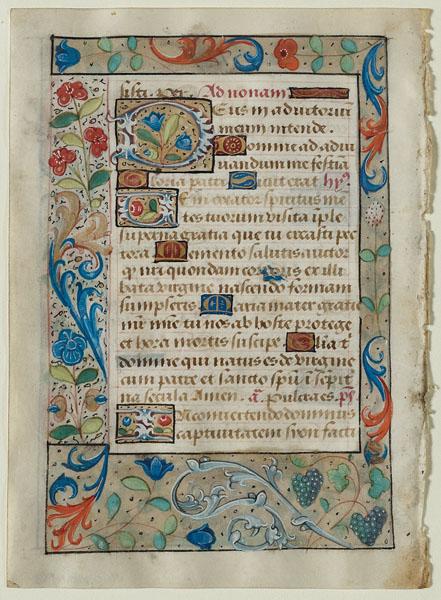 fisti. xpi. Ad nonam
Deus in adiutoriū
meum intende.
Domine ad adiu
uandum me festīa
Gloria patri Sicut erat hy9
Veni creator spiritus me
tes tuorum visita iple
superna gratia que tu creasti pec
tora Memento salutis auctor
q nr̄i quondam corporis ex illi
bata virgine nascendo formam
sumpseris Maria mater gratie
mr̄ mīe tu nos ab hoste protege
et hora mortis suscipe Glia t̄
domine qui natus es de virgine
cum patre et sancto spū ī sempit
na secula Amen. a. Pulcra es. ps
IN conuertendo dominus
captiuitatem syon facti